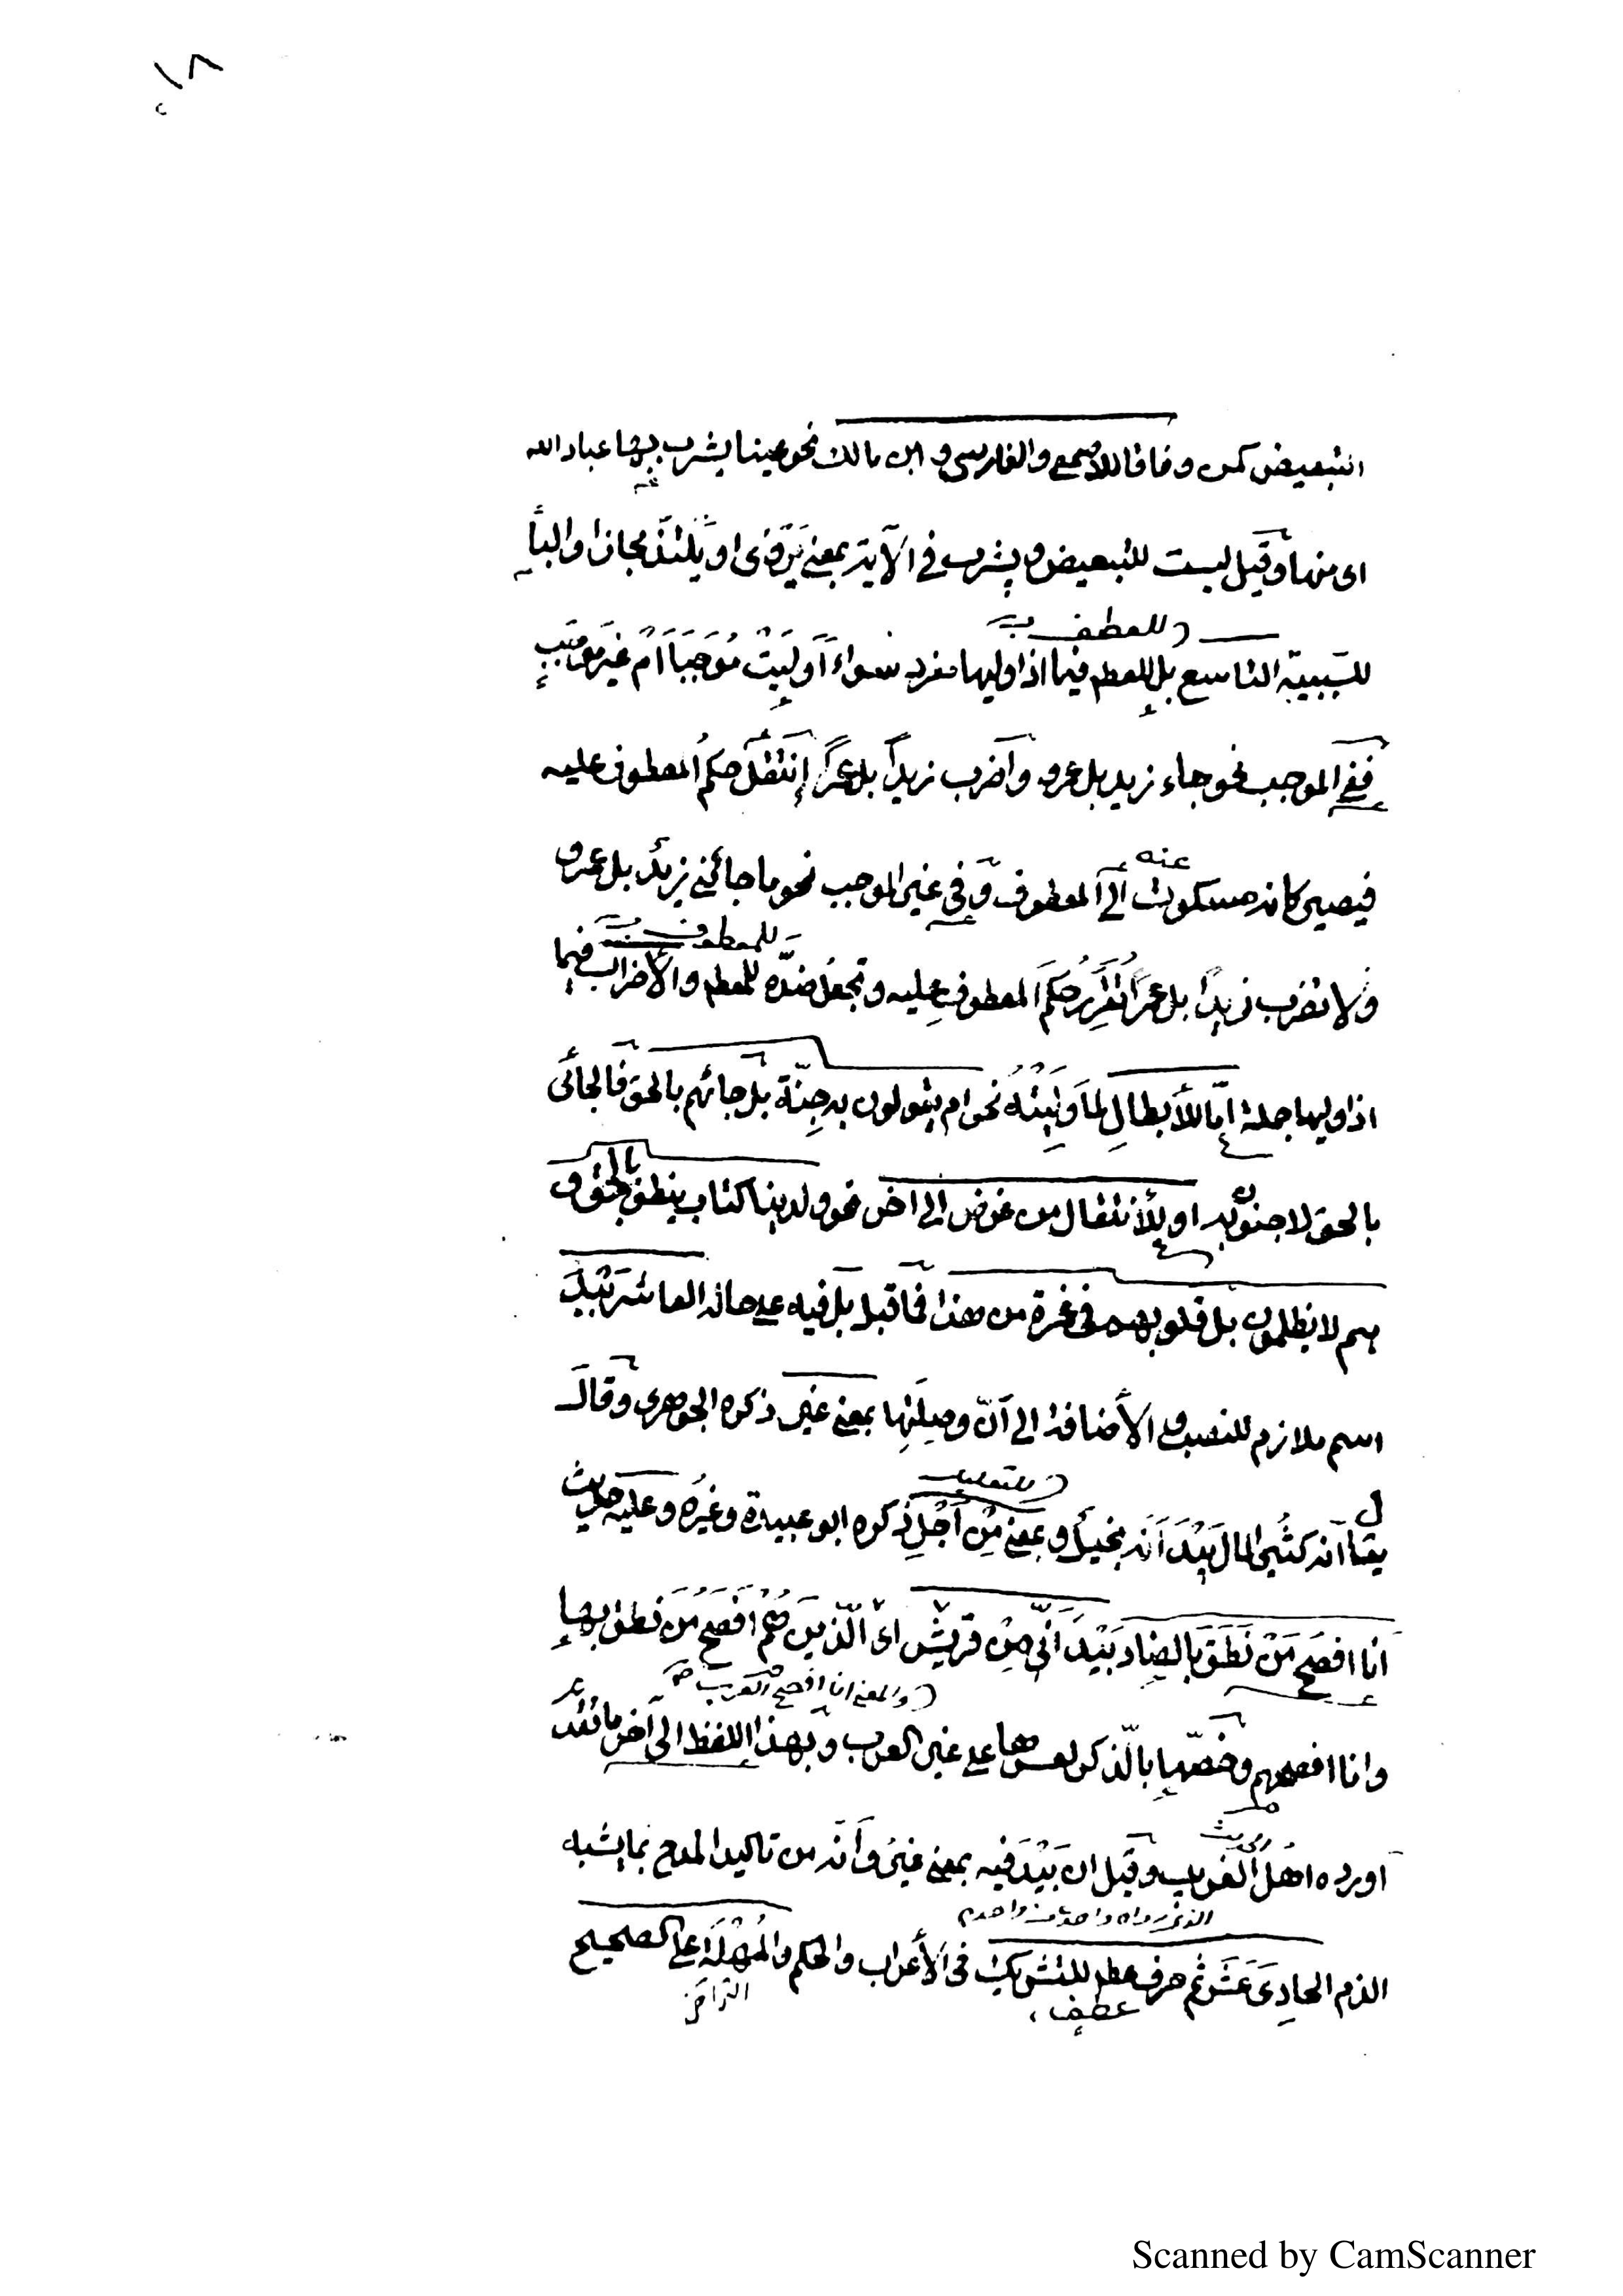 ١٨
التبعيض كمن وفاقا للاصمعي والفارسي وابن مالك نحو عينا يشرب بها عباد الله
اى منها وقيل ليست للتبعيض ويشرب فى الآية بمعنى يَرْوَى او يَلْتَذّ مجازا والبأ
للعطف
للسَبَبيّة التاسع بل للعطف فيما اذا وليها مفرد سواءَ أَوَلِيَتْ مُوجَبَاً أمْ غيرَ موجَبٍ
ففى الموجب نحو جاء زيد بل عمرو واضرب زيداً بل عمراً إنتَقَلَ حكمُ المعطوف عليه
عنه
فيصير كانه مسكوت الى المعطوف وفى غير الموجب نحو ما جائنى زيدٌ بل عمرو
للمعطوف
ولا تضرب زيداً بل عمراً تُقَرِّرُ حُكمَ المعطوفِ عليه وتجعلُ ضدّه للمعط والأضراب فيما
اذا وليها جملة امّا للأبطالِ لما وَلِيَتْهُ نحو ام يقولون به جِنّة بل جائهم بالحق فالجائى
بالحق لا جنون به او للأنتقال من غرض الى اخر نحو ولدينا كتاب ينطق بالحق و
هم لا يظلمون بل قلوبهم فى غمرة من هذا فما قبل بل فيه على حاله العاشر بَيْدَ
اسم ملازم للنصب و الأضافة الى أنّ وصِلَتِها بمعنى غير ذكره الجوهرى وقالَ
للتعليل
يقال انه كثير المال بَيْدَ أنه بخيل وبمعنى مِنْ أَجْلِ ذكره ابو عبيدة وغيرُه وعليه حديث
انا افصَح مَنْ نَطَقَ بالضاد بَيْدَ أنّى مِنْ قريش اى الّذينَ هُمْ أفصحُ مَنْ نطق بها
والمعنى انا افصح العرب
وانا افصحهم وخصّها بالذكر لعسرها على غير العرب وبهذا اللفظ الى آخر ما تقدّم
الحديث
اورده اهلُ الغريب وقيل ان بَيْدَ فيه بمعنى غير وأنّه من تاكيد المدح بما يشبه
الذم الحادِىَ عَشَرَ ثم حرف عطف للتشريك فى الأعراب والحكم والمُهْلَة على الصحيح
عطف
التراخى
Scanned by CamScanner